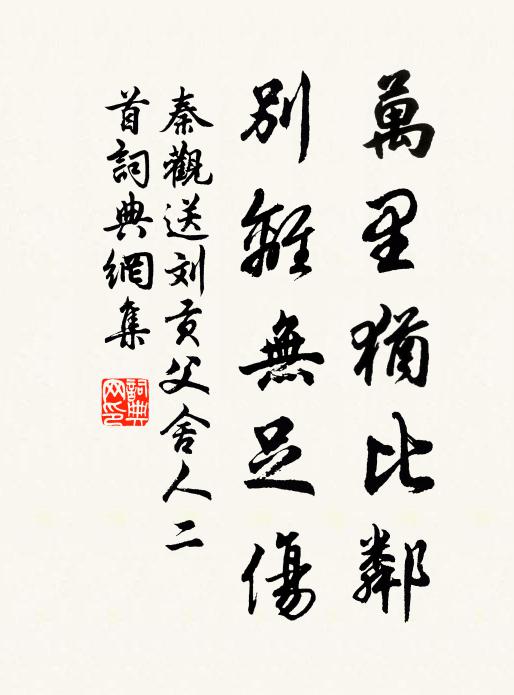 萬里猶比鄰
別離無足傷
秦觀送刘貢父舍人二
首詞典網集
詞典
网印